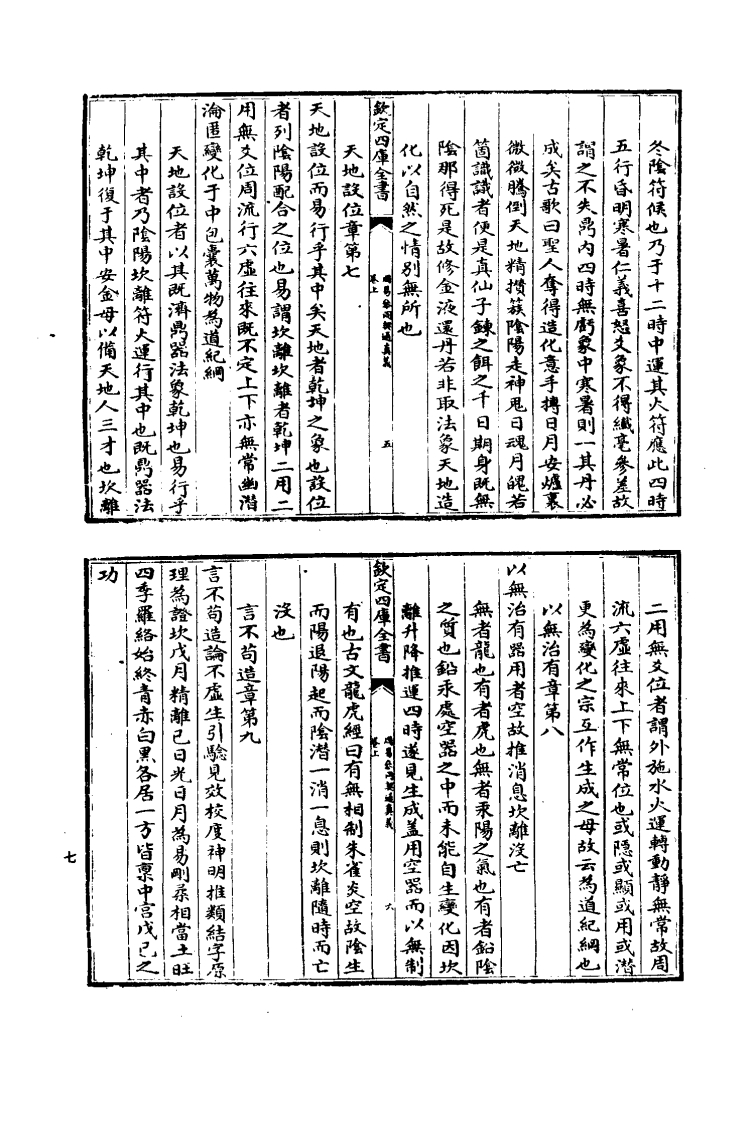 冬陰符候也乃于十二時中運其火符應此四時
五行昏明寒暑仁義喜怒爻象不得纎毫參差故
謂之不失鼎内四時無虧象中寒暑則一其丹必
成矣古歌曰聖人奪得造化意手搏日月安爐裏
微微騰倒天地精攢簇陰陽走神鬼日魂月魄若
箇識識者便是真仙子鍊之餌之千日期身既無
陰那得死是故修金液還丹若非取法象天地造
化以自然之情别無所也
欽定四庫全書
周易參同契通真義
卷上
五
天地設位章第七
天地設位而易行乎其中矣天地者乾坤之象也設位
者列陰陽配合之位也易謂坎離坎離者乾坤二用二
用無爻位周流行六虛往來既不定上下亦無常幽潛
淪匿變化于中包囊萬物為道紀綱
天地設位者以其既濟鼎器法象乾坤也易行乎
其中者乃陰陽坎離符火運行其中也既鼎器法
乾坤復于其中安金母以備天地人三才也坎離
二用無爻位者謂外施水火運轉動靜無常故周
流六虛往來上下無常位也或隱或顯或用或潛
更為變化之宗互作生成之母故云為道紀綱也
以無治有章第八
以無治有器用者空故推消息坎離沒亡
無者龍也有者虎也無者汞陽之氣也有者鉛陰
之質也鉛汞處空器之中而未能自生變化因坎
離升降推運四時遂見生成蓋用空器而以無制
欽定四庫全書
周易參同契通真義
卷上
六
有也古文龍虎經曰有無相制朱雀炎空故陰生
而陽退陽起而陰潛一消一息則坎離隨時而亡
沒也
言不茍造章第九
言不茍造論不虛生引驗見效校度神明推類結字原
理為證坎戊月精離己日光日月為易剛柔相當土旺
四季羅絡始終青赤白黑各居一方皆稟中宫戊己之
功
七